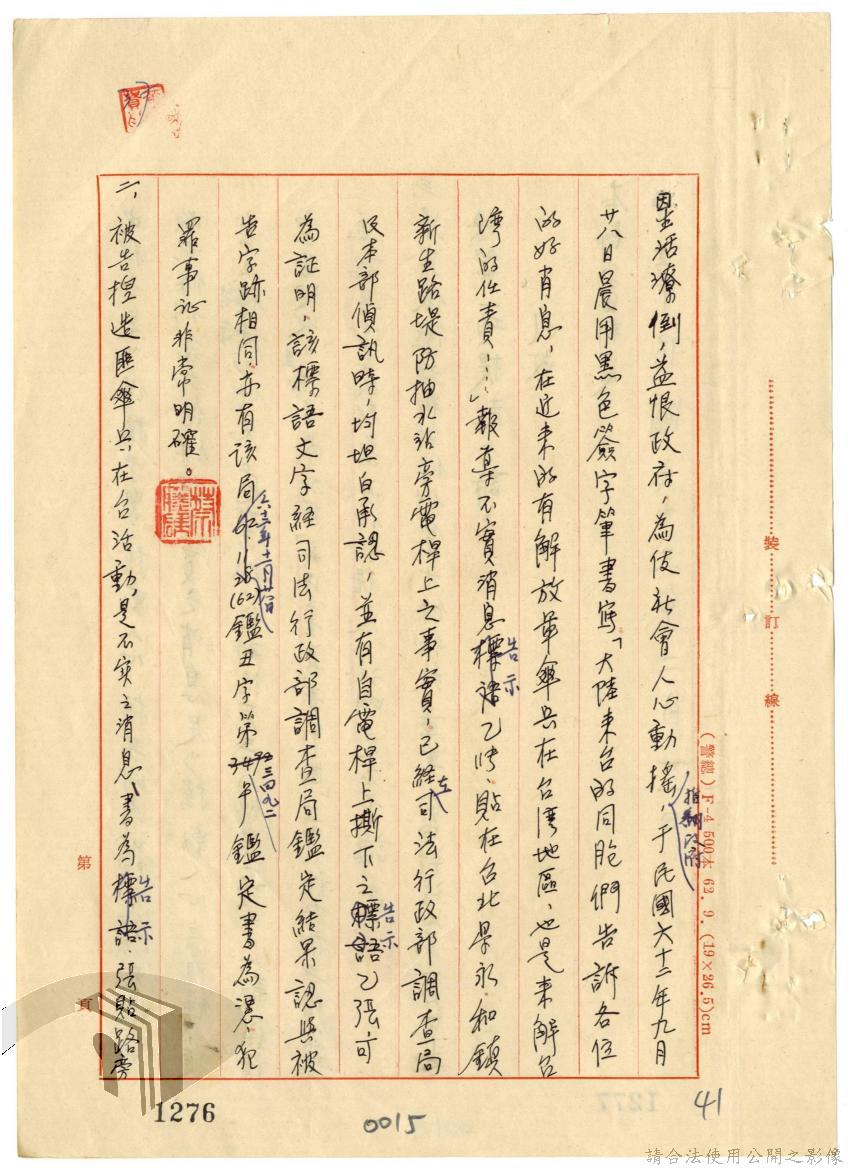 因生活潦倒，益恨政府，為使社會人心動搖，推翻政府，于民國六十二年九月
廿八日晨用黑色簽字筆書寫「大陸來台的同胞們告訴各位
的好消息，在近來的有解放軍傘兵在台湾地區，也是來解台
湾的任責……」報導不實消息標語告示乙張，貼在台北県永和鎮
新生路堤防抽水站旁電桿上之事實，已經在司法行政部調查局
及本部偵訊時，均坦白承認，並有自電桿上撕下之標語告示乙張可
為証明，該標語文字経司法行政部調查局鑑定結果認與被
告字跡相同亦有該局六十二年十二月廿八日(62)鑑丑字第三四九二鑑定書為憑，犯
罪事証非常明確。
二、被告揑造匪傘兵在台活動，是不实之消息，書為標語告示，張貼路旁
第 頁
裝 訂 線
F-4 500本 62.9.(19×26.5)cm
1276
0015
41
請合法使用公開之影像